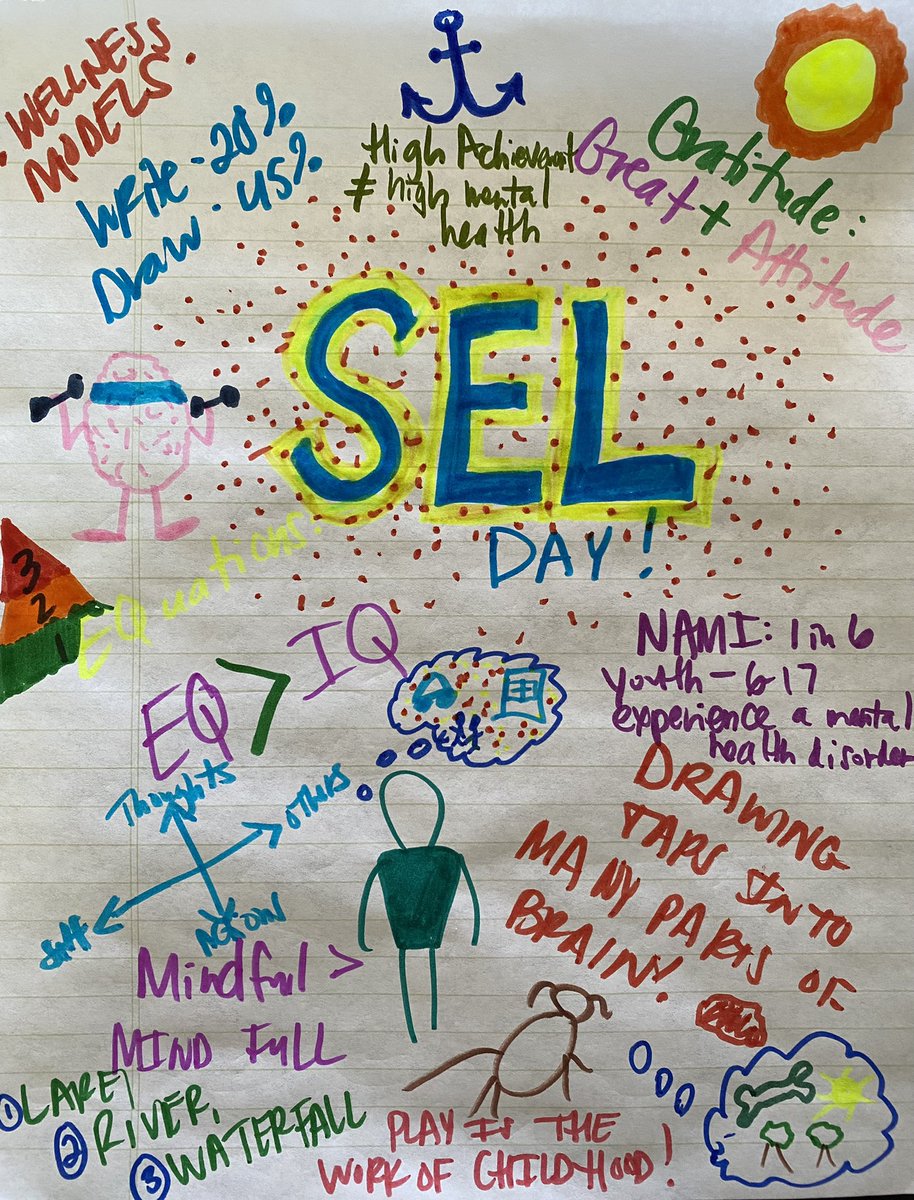 WELLNESS
MODELS
Write - 20%
Draw - 45%
High Achievement
≠ high mental
health
Gratitude:
Great +
Attitude
SEL
DAY!
3
2
1
EQuations:
EQ > IQ
NAMI: 1 in 6
youth - 6 17
experience a mental
health disorder
Thoughts
others
self
Action
DRAWING
TAPS INTO
MANY PARTS OF
BRAIN!
Mindful >
MIND FULL
① LAKE,
② RIVER,
③ WATERFALL
PLAY IS THE
WORK OF CHILDHOOD!